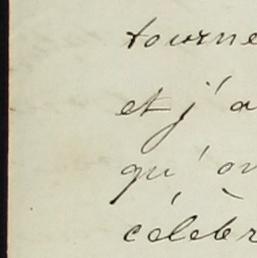 tourne
et j'a
qu'on
célèbr